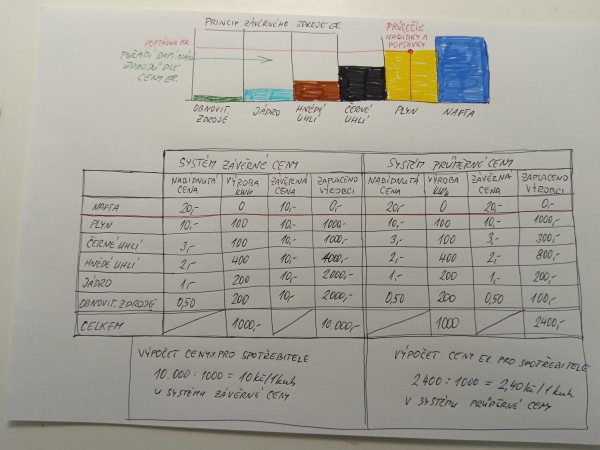 PRINCIP ZÁVĚRNÉHO ZDROJE EE
POPTÁVKA EE
PRŮSEČÍK
NABÍDKY A
POPTÁVKY
POŘADÍ ZAPÍNÁNÍ
ZDROJŮ DLE
CENY EE.
OBNOVIT.
ZDROJE
JÁDRO
HNĚDÉ
UHLÍ
ČERNÉ
UHLÍ
PLYN
NAFTA
SYSTÉM ZÁVĚRNÉ CENY SYSTÉM PRŮMĚRNÉ CENY
NABÍDNUTÁ CENA VÝROBA KWh ZÁVĚRNÁ CENA ZAPLACENO VÝROBCI NABÍDNUTÁ CENA VÝROBA KWh ZÁVĚRNÁ CENA ZAPLACENO VÝROBCI
NAFTA 20,- 0 10,- 0,- 20,- 0 20,- 0,-
PLYN 10,- 100 10,- 1000,- 10,- 100 10,- 1000,-
ČERNÉ UHLÍ 3,- 100 10,- 1000,- 3,- 100 3,- 300,-
HNĚDÉ UHLÍ 2,- 400 10,- 4000,- 2,- 400 2,- 800,-
JÁDRO 1,- 200 10,- 2000,- 1,- 200 1,- 200,-
OBNOVIT. ZDROJE 0,50 200 10,- 2000,- 0,50 200 0,50 100,-
CELKEM 1000,- 10.000,- 1000 2400,-
VÝPOČET CENY PRO SPOTŘEBITELE
10.000 : 1000 = 10 kč/1kwh
U SYSTÉMU ZÁVĚRNÉ CENY
VÝPOČET CENY EE. PRO SPOTŘEBITELE
2400 : 1000 = 2,40 kč/1kwh
V SYSTÉMU PRŮMĚRNÉ CENY